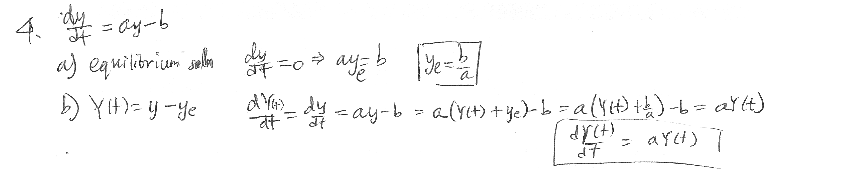 4. dy/dt = ay-b
a) equilibrium soln dy/dt = 0 ⇒ ay_e = b y_e = b/a
b) Y(t) = y - y_e dY(t)/dt = dy/dt = ay-b = a(Y(t) + y_e) - b = a(Y(t) + b/a) - b = aY(t)
dY(t)/dt = aY(t)